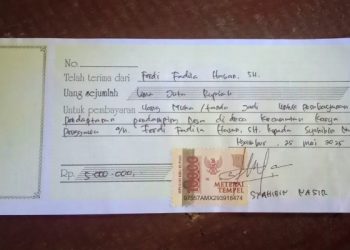 No.
Telah terima dari Ferdi Fadila Hasan, SH.
Uang sejumlah Lima Juta Rupiah
Untuk pembayaran Uang Muka / tanda jadi untuk pembayaran
Pendaftaran pendamping Desa di desa Kecamatan Karya
a/n. Ferdi Fadila Hasan, SH. Kepada Syahibin Na
25 Mei 2025
Rp. 5.000.000,-
10000
METERAI
TEMPEL
97567AMX293918474
SYAHIBIN NASIR